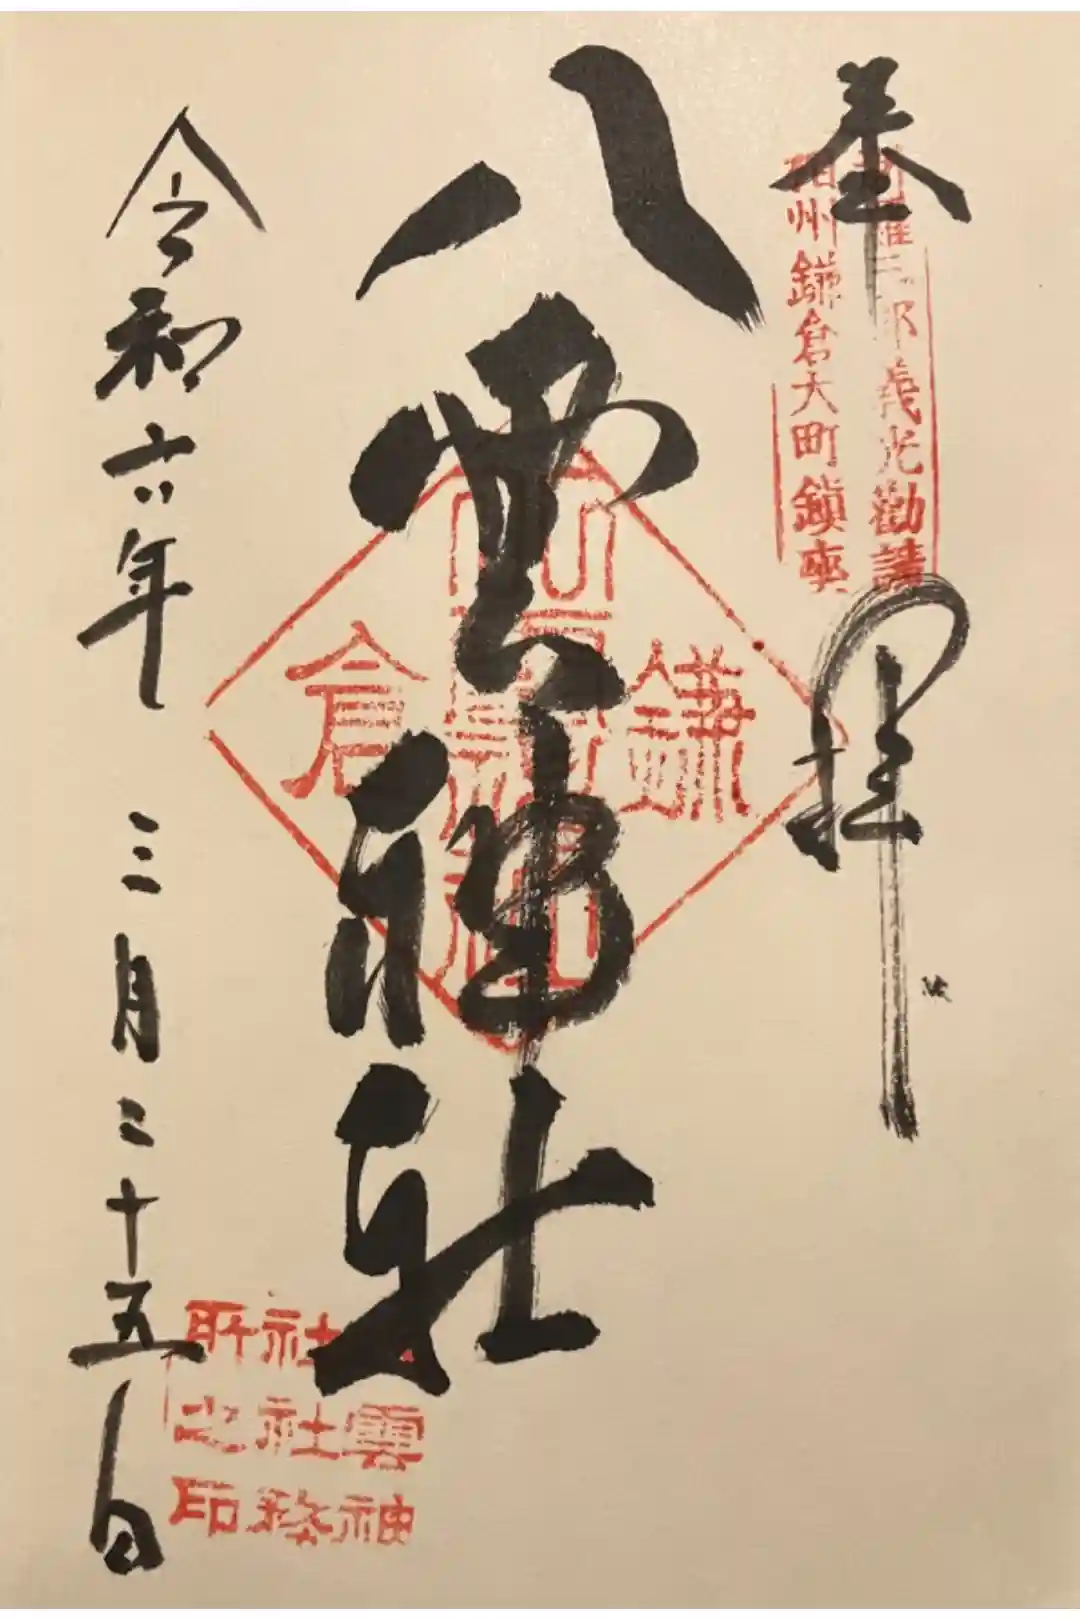 奉拝
新羅三郎義光勧請
相州鎌倉大町鎮座
八雲神社
鎌倉
令和六年 三月二十五日
雲神
社社務
所之印